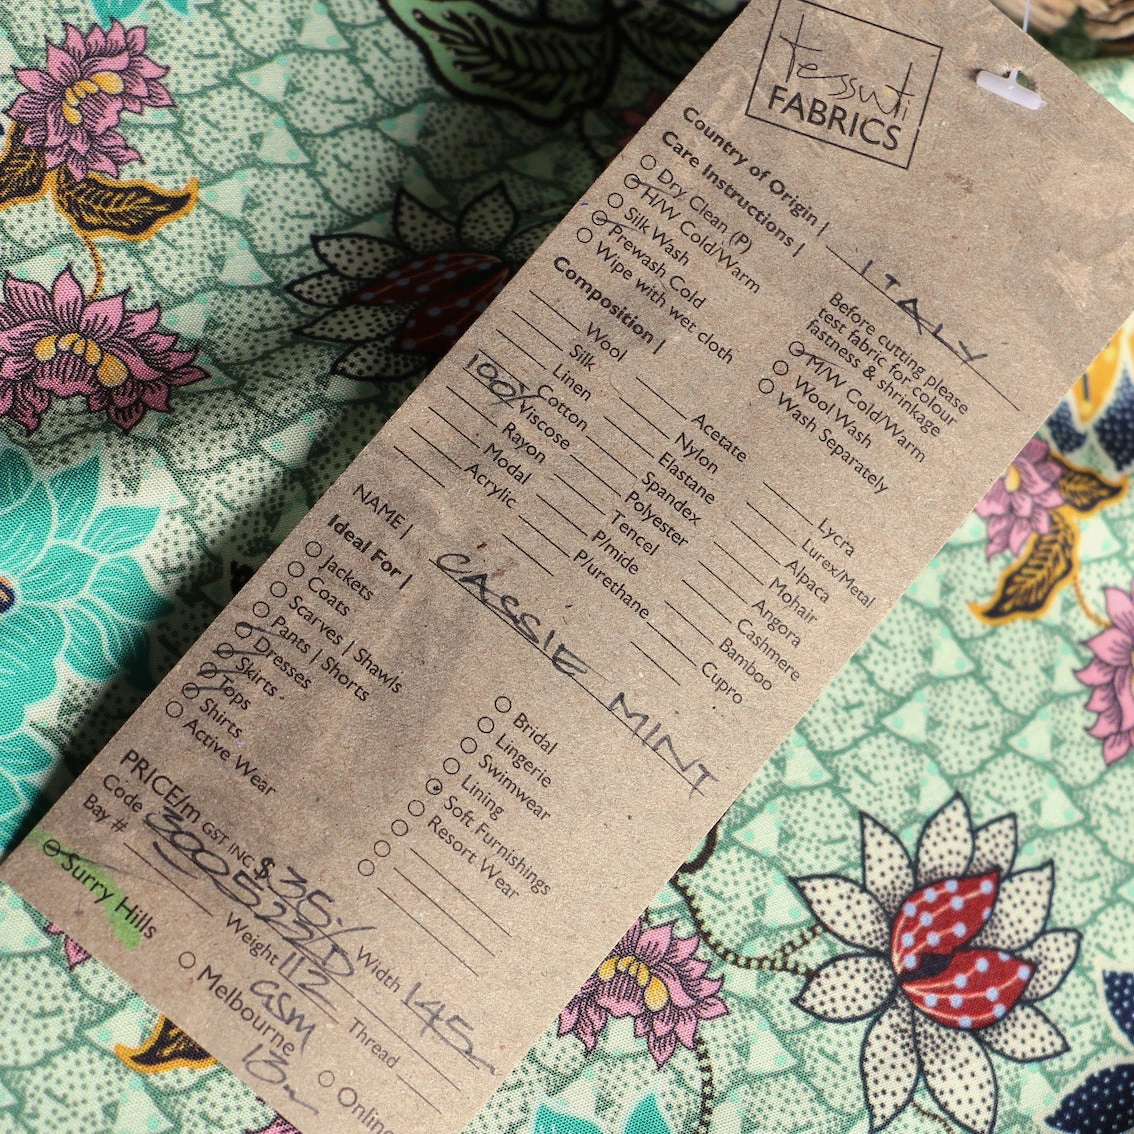 tessuti
FABRICS
Country of Origin | ITALY
Care Instructions |
Dry Clean (P)
H/W Cold/Warm
Silk Wash
Prewash Cold
Wipe with wet cloth
Before cutting please
test fabric for colour
fastness & shrinkage
M/W Cold/Warm
Wool/Wash
Wash Separately
Composition |
Wool
Silk
Linen
100% Cotton
Viscose
Rayon
Modal
Acrylic
Acetate
Nylon
Elastane
Spandex
Polyester
Tencel
P/mide
P/urethane
Lycra
Lurex/Metal
Alpaca
Mohair
Angora
Cashmere
Bamboo
Cupro
NAME | CASSIE MINT
Ideal For |
Jackets
Coats
Scarves | Shawls
Pants | Shorts
Dresses
Skirts
Tops
Shirts
Active Wear
Bridal
Lingerie
Swimwear
Lining
Soft Furnishings
Resort Wear
PRICE/m GST INC $35/ Width 145
Code 300522D
Bay # Weight 112 Thread
GSM
Surry Hills Melbourne Online
13m